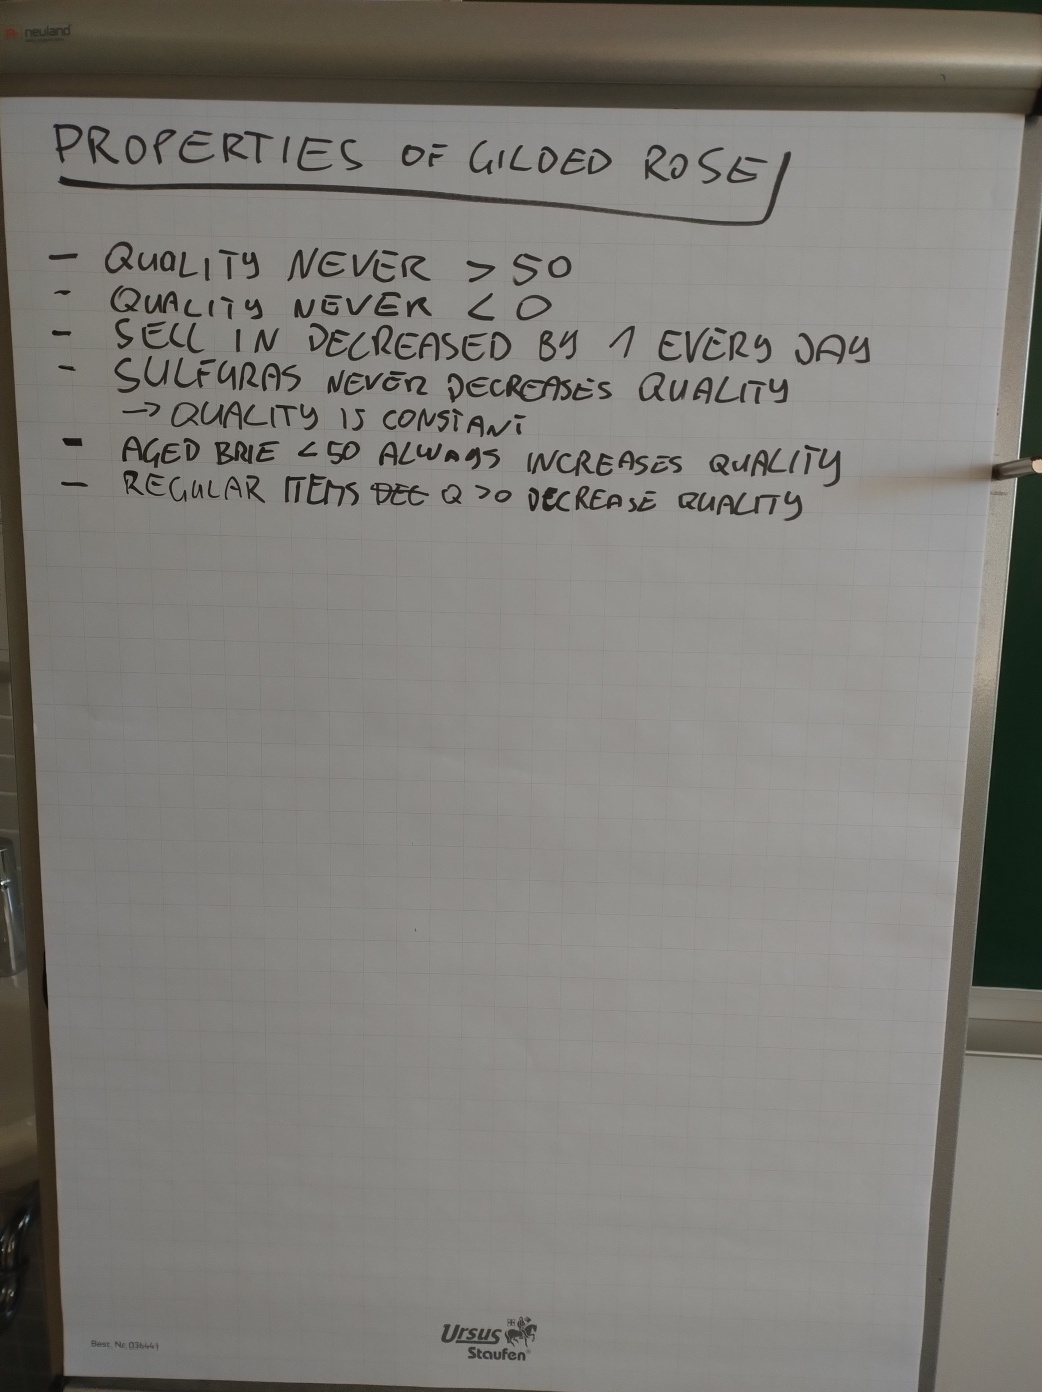 neuland
PROPERTIES OF GILDED ROSE
- QUALITY NEVER > 50
- QUALITY NEVER < 0
- SELL IN DECREASED BY 1 EVERY DAY
- SULFURAS NEVER DECREASES QUALITY
→ QUALITY IS CONSTANT
- AGED BRIE < 50 ALWAYS INCREASES QUALITY
- REGULAR ITEMS DEC Q > 0 DECREASE QUALITY
Best. Nr. 036441
Ursus
Staufen